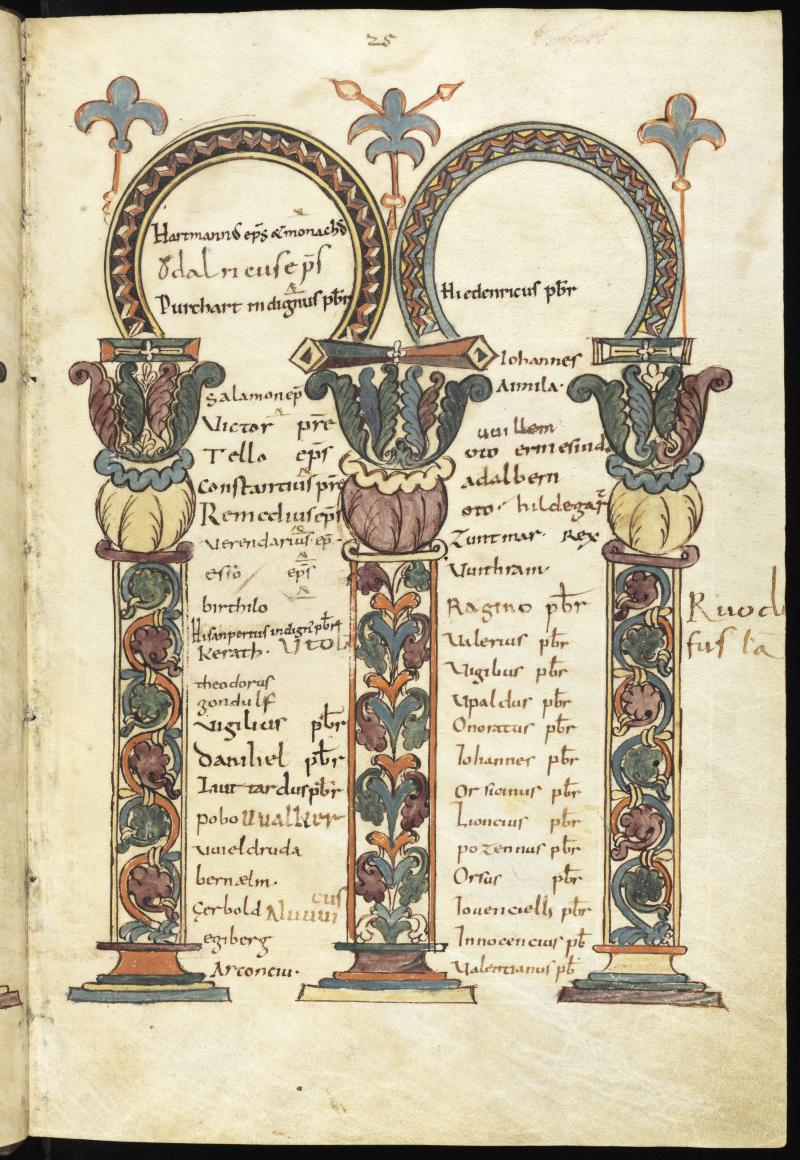 25
Hartmann⁹ ep̄s & monach⁹
Odalricus ep̄s
Purchart indignus pb̄r
Salamon ep̄
Victor pre
Tello ep̄s
Constantius pre
Remedius ep̄s
Verendarius ep̄
ep̄s
birthilo
Kerath. Vtol
theodorus
gondulf
Vigilius pb̄r
Danihel pb̄r
pobo Vualker
vvieldruda
bernælm.
Gerbold
egiberg
Arconciu.
Hiedenricus pb̄r
Iohannes
Amila.
uuillem
oto ermesinda
adalbern
oto. hildegar
Zuntmar. Rex
Vuithram.
Ragino pb̄r
Valerius pb̄r
Vigibus pb̄r
Vpaldus pb̄r
Onoratus pb̄r
Iohannes pb̄r
Orsicinus pb̄r
Lioncius pb̄r
pozennus pb̄r
Orsus pb̄r
Iouenciells pb̄r
Innocencius pb̄
Valentianus pb̄
Ruodl
fus la